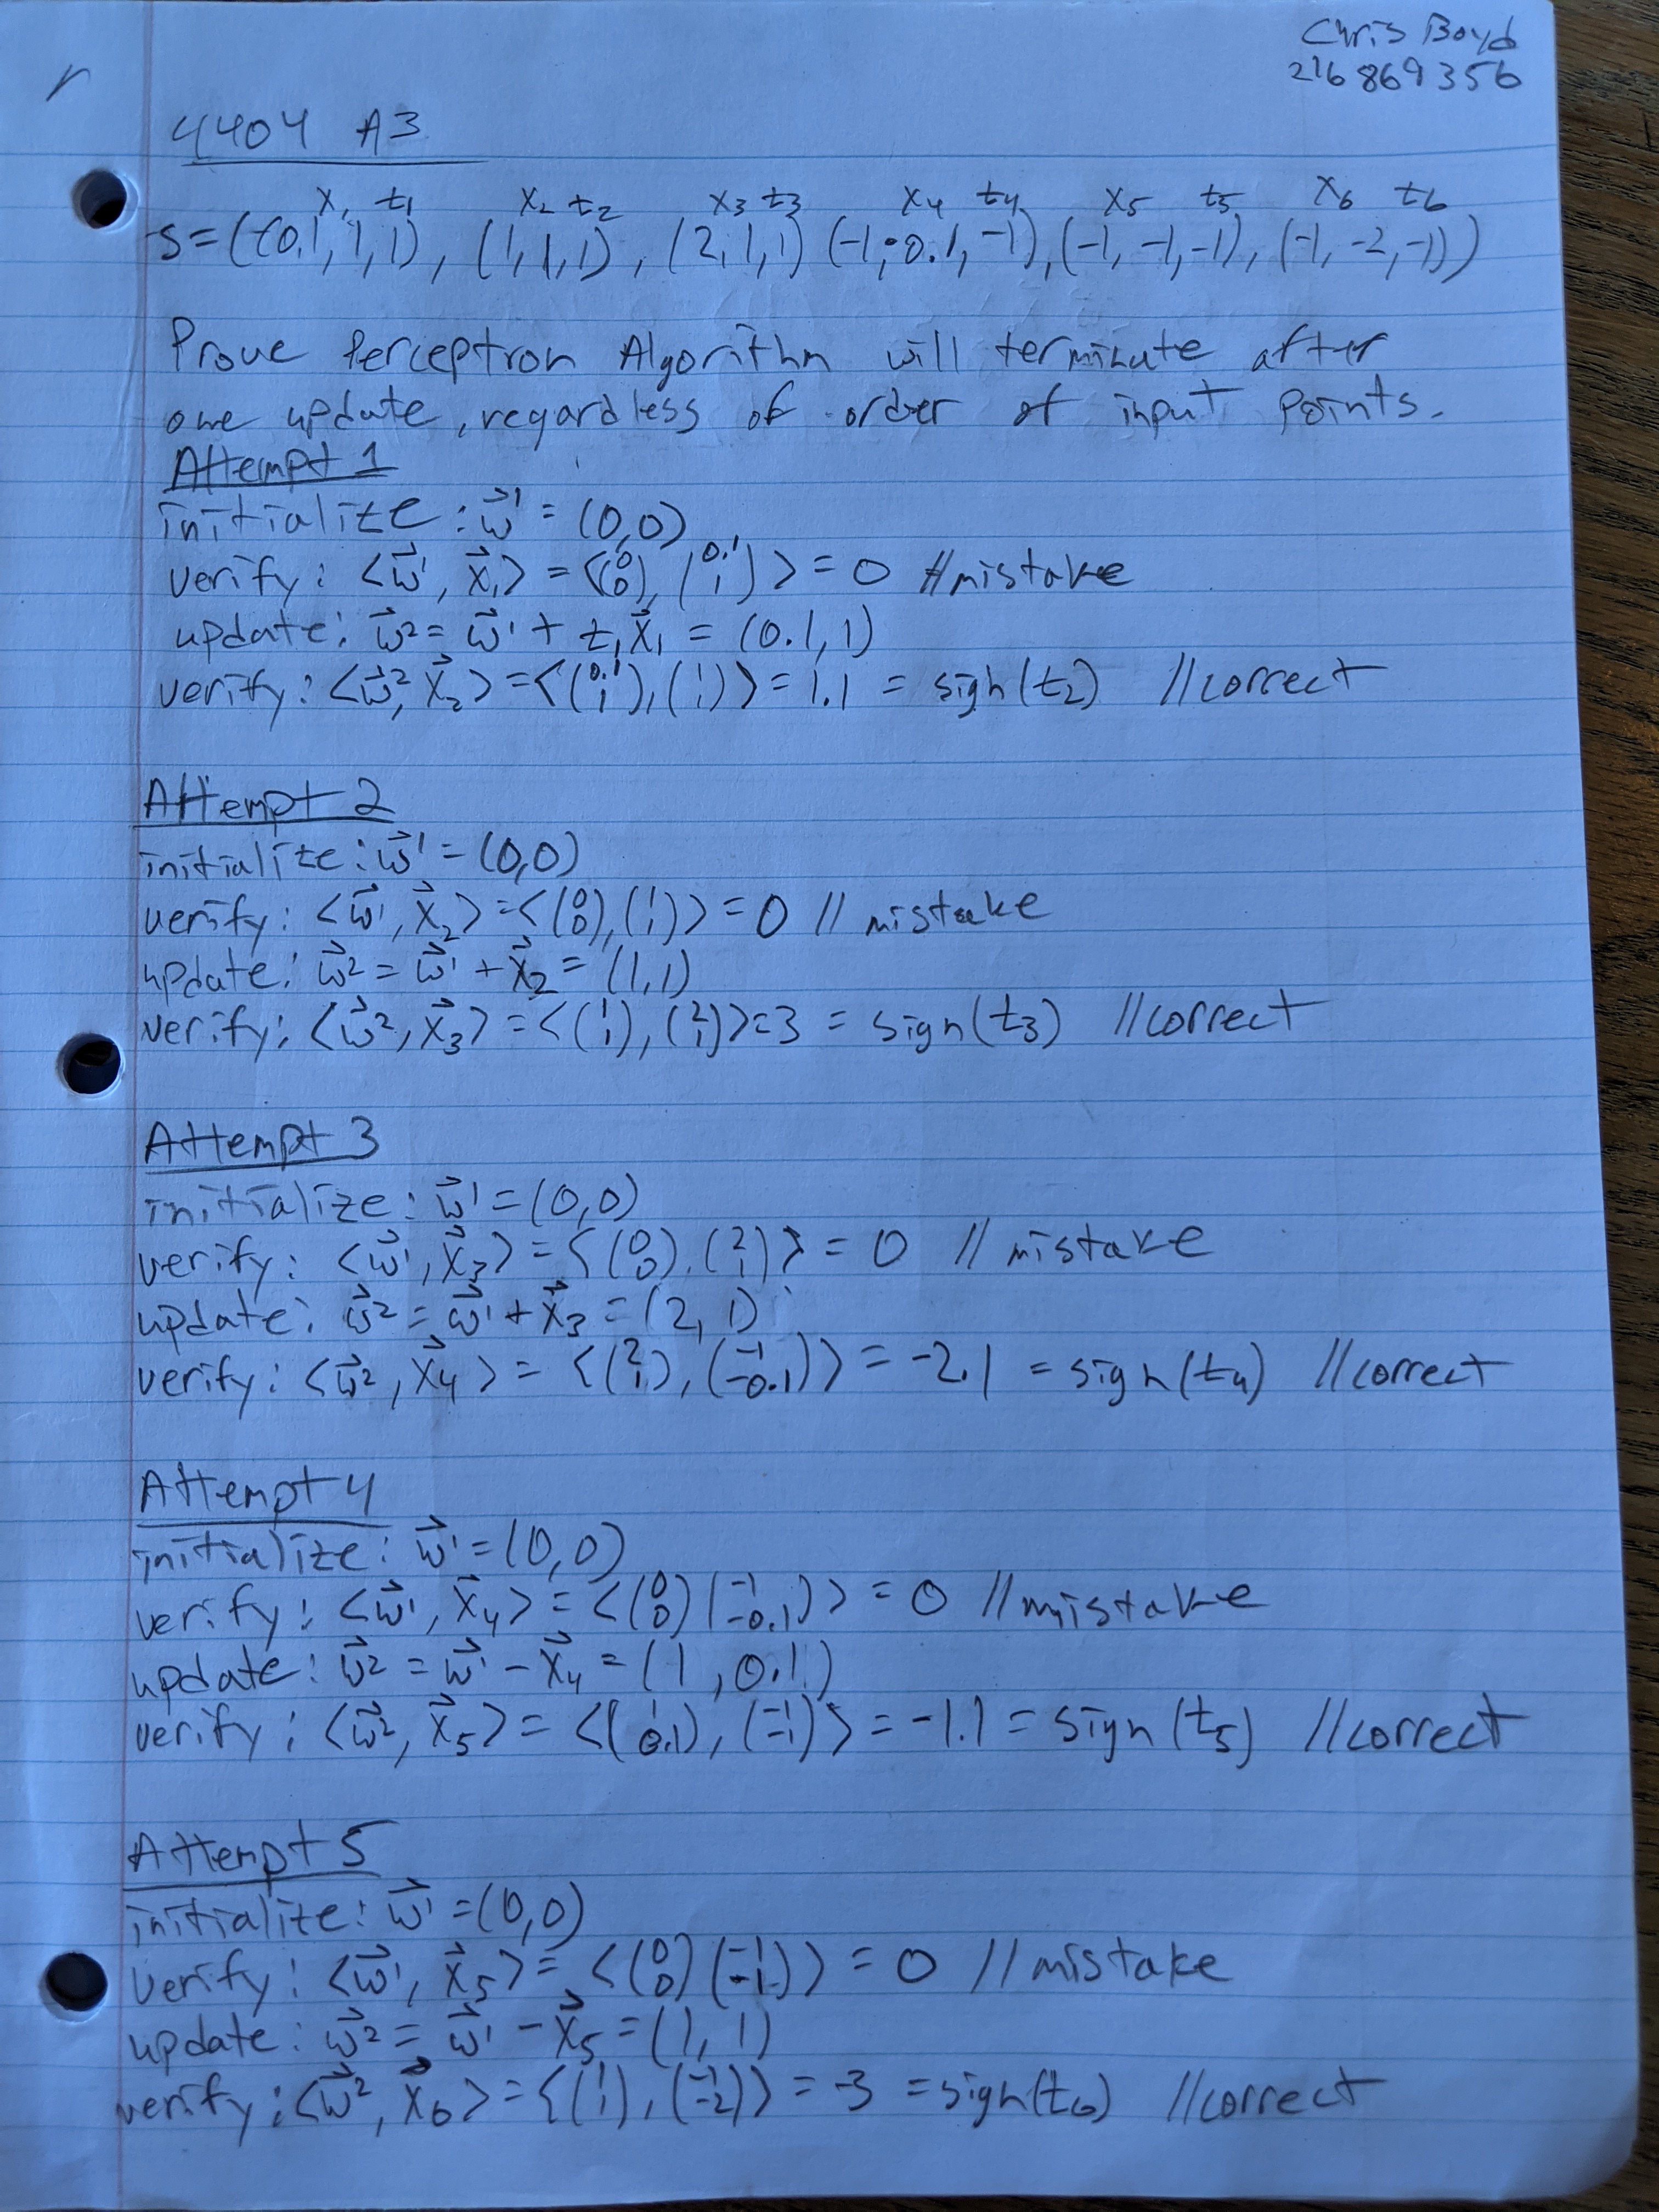 Chris Boyd
216 869 356
4404 A3
x₁ t₁ x₂ t₂ x₃ t₃ x₄ t₄ x₅ t₅ x₆ t₆
S=((0.1,1,1), (1,1,1), (2,1,1) (-1,-0.1,-1), (-1,-1,-1), (-1,-2,-1))
Prove Perceptron Algorithm will terminate after
one update, regardless of order of input points.
Attempt 1
initialize: w⃗¹ = (0,0)
verify: <w⃗¹, x⃗₁> = <(0 0), (0.1 1)> = 0 //mistake
update: w⃗² = w⃗¹ + t₁x⃗₁ = (0.1, 1)
verify: <w⃗², x⃗₂> = <(0.1 1), (1 1)> = 1.1 = sign(t₂) //correct
Attempt 2
initialize: w⃗¹ = (0,0)
verify: <w⃗¹, x⃗₂> = <(0 0), (1 1)> = 0 // mistake
update: w⃗² = w⃗¹ + x⃗₂ = (1,1)
verify: <w⃗², x⃗₃> = <(1 1), (2 1)> = 3 = sign(t₃) //correct
Attempt 3
initialize: w⃗¹ = (0,0)
verify: <w⃗¹, x⃗₃> = <(0 0), (2 1)> = 0 // mistake
update: w⃗² = w⃗¹ + x⃗₃ = (2, 1)
verify: <w⃗², x⃗₄> = <(2 1), (-1 -0.1)> = -2.1 = sign(t₄) //correct
Attempt 4
initialize: w⃗¹ = (0,0)
verify: <w⃗¹, x⃗₄> = <(0 0) (-1 -0.1)> = 0 //mistake
update: w⃗² = w⃗¹ - x⃗₄ = (1, 0.1)
verify: <w⃗², x⃗₅> = <(1 0.1), (-1 -1)> = -1.1 = sign(t₅) //correct
Attempt 5
initialize: w⃗¹ = (0,0)
verify: <w⃗¹, x⃗₅> = <(0 0) (-1 -1)> = 0 //mistake
update: w⃗² = w⃗¹ - x⃗₅ = (1, 1)
verify: <w⃗², x⃗₆> = <(1 1), (-1 -2)> = -3 = sign(t₆) //correct